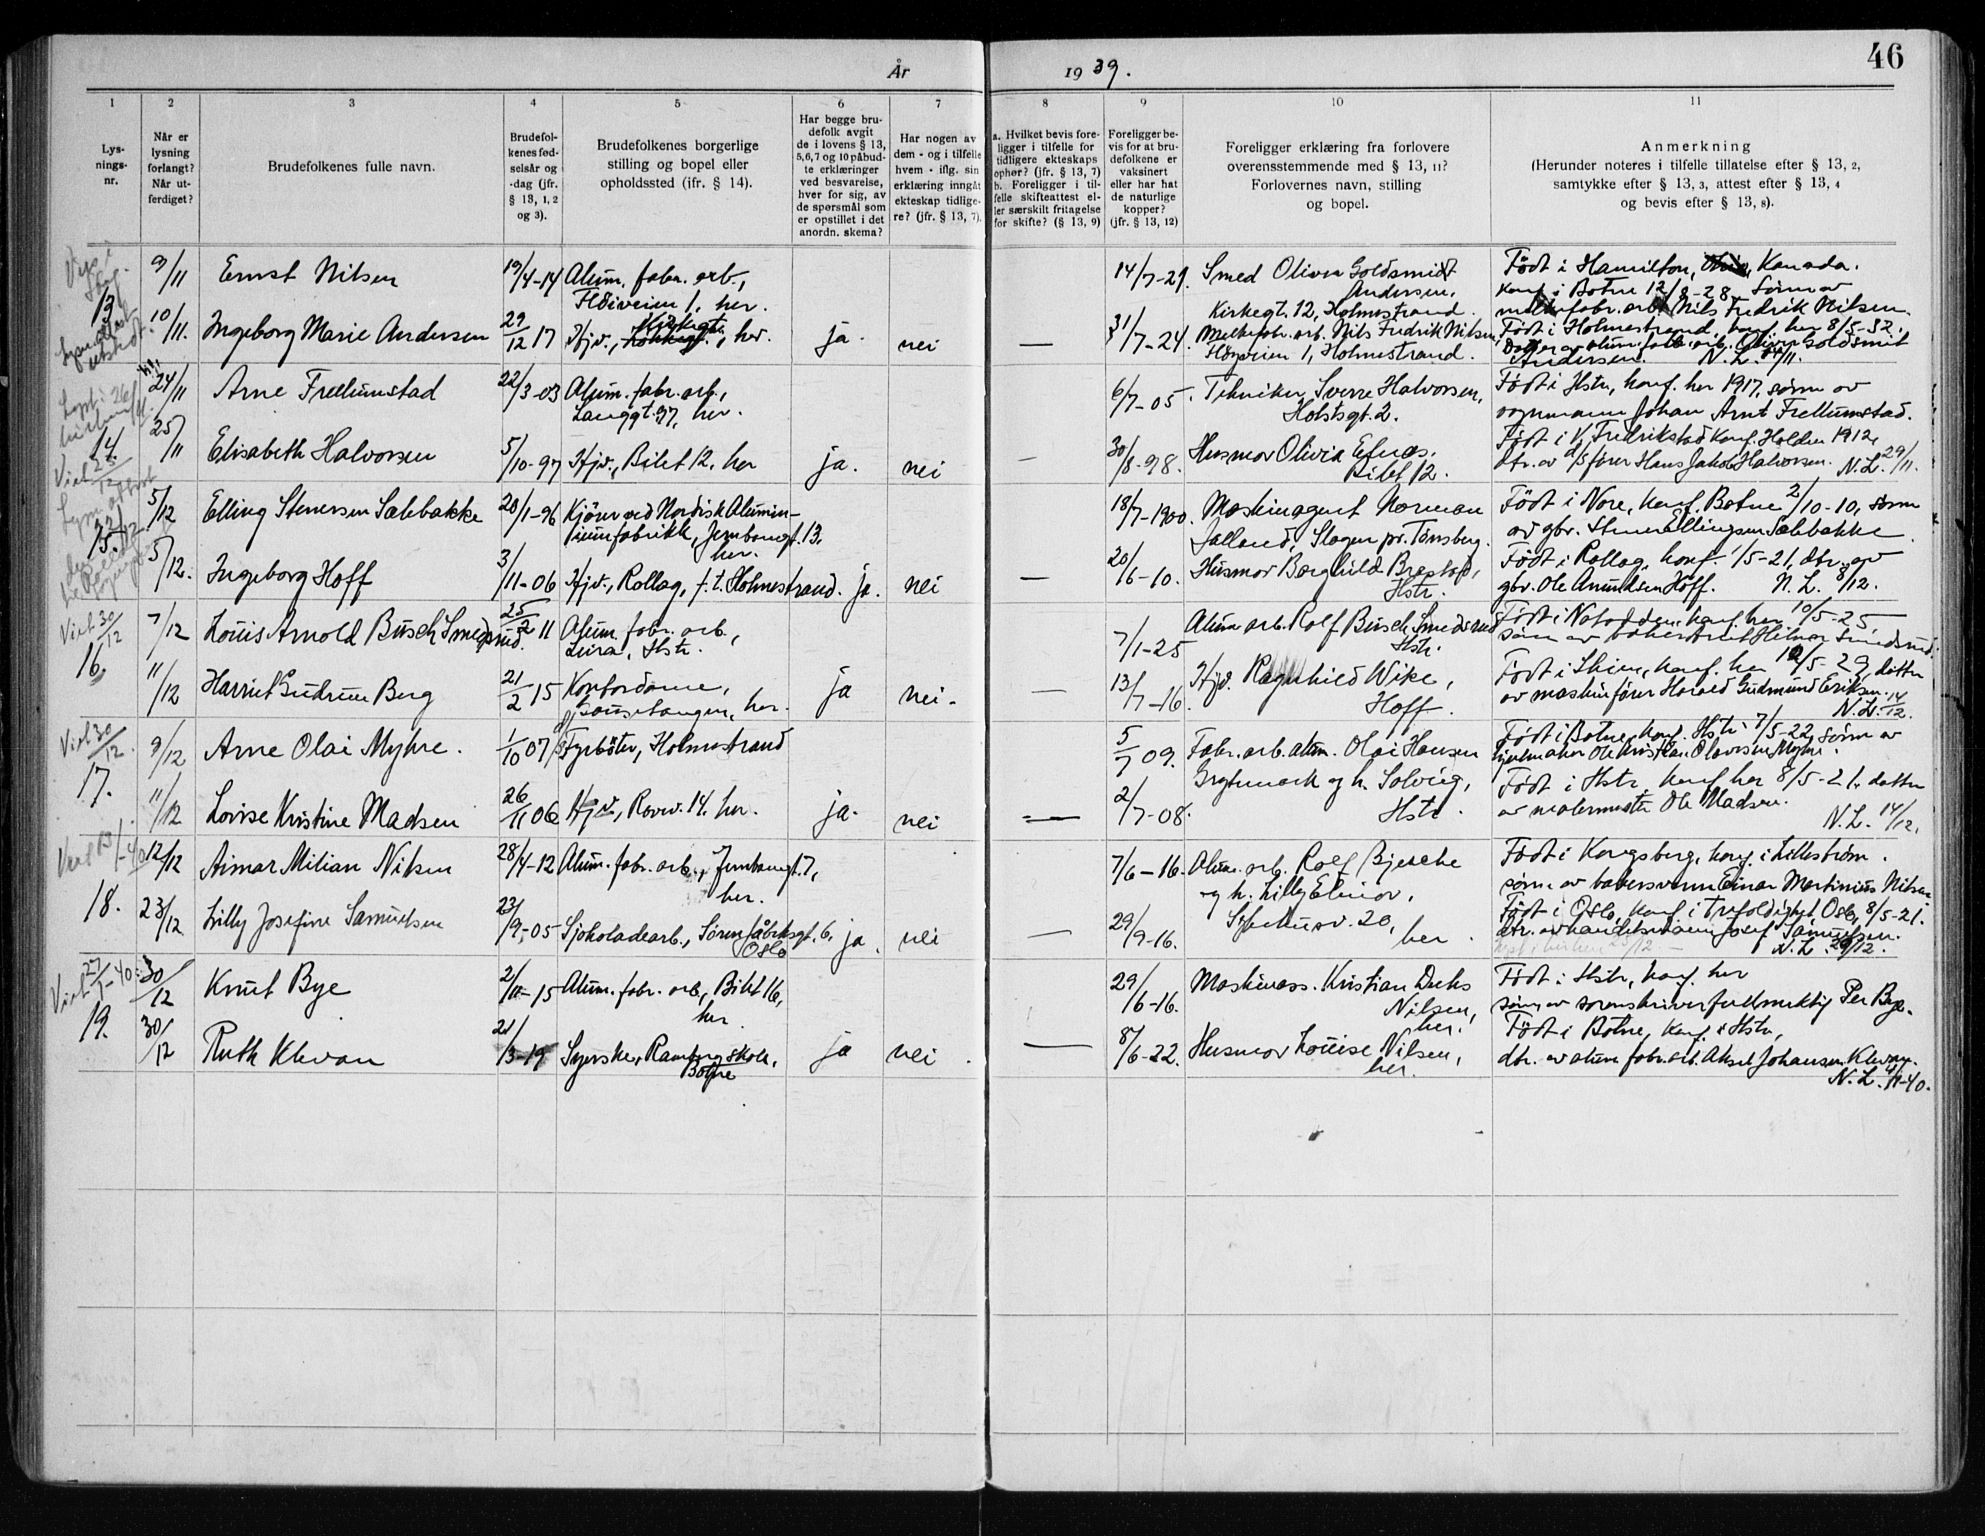 46
År 1939.
1 2 3 4 5 6 7 8 9 10 11
Lys-
nings-
nr.
Når er
lysning
forlangt?
Når ut-
ferdiget?
Brudefolkenes fulle navn.
Brudefol-
kenes fød-
selsår og
-dag (jfr.
§ 13, 1, 2
og 3).
Brudefolkenes borgerlige
stilling og bopel eller
opholdssted (ifr. § 14).
Har begge bru-
defolk avgit
de i lovens § 13,
5,6,7 og 10 påbud-
te erklæringer
ved besvarelse,
hver for sig, av
de spørsmål som
er opstillet i det
anordn. skema?
Har nogen av
dem - og i tilfelle
hvem - iflg. sin
erklæring inngåt
ekteskap tidlige-
re? (jfr. § 13, 7).
a. Hvilket bevis fore-
ligger i tilfelle for
tidligere ekteskaps
ophør? (jfr. § 13, 7)
b. Foreligger i til-
felle skifteattest el-
ler særskilt fritagelse
for skifte? (§ 13, 9)
Foreligger be-
vis for at bru-
defolkene er
vaksinert
eller har hat
de naturlige
kopper?
(jfr. § 13, 12)
Foreligger erklæring fra forlovere
overensstemmende med § 13, 11?
Forlovernes navn, stilling
og bopel.
Anmerkning
(Herunder noteres i tilfelle tillatelse efter § 13, 2,
samtykke efter § 13, 3, attest efter § 13, 4
og bevis efter § 13, 8).
13
9/11 Ernst Nilsen 19/4-14 Alum. fabr. arb.,
Fløiveien 1, her.
14/7-29. Smed Oliver Goldsmidt
Andersen,
Kirkegt. 12, Holmestrand.
Født i Hamilton, Kanada.
konf. i Botne 12/8-28. Sønn av
fabr. arb. Nils Fredrik Nilsen.
10/11. Ingeborg Marie Andersen 29/12 17 Hjv., Kirkegt., her. ja. nei —
31/7-24. Melkefabr. arb. Nils Fredrik Nilsen,
1, Holmestrand.
Født i Holmestrand, konf. her 8/5-32.
Datter av alum. fabr. arb. Oliver Goldsmit
Andersen. N.L. 14/11.
14.
24/11 Arne Frellumstad 22/3-03 Alum. fabr. arb.,
Langgt. 97, her.
6/7-05. Tekniker Sverre Halvorsen,
Holstsgt. 2.
Født i Hstr., konf. her 1917, sønn av
vognmann Johan Arnt Frellumstad.
25/11 Elisabeth Halvorsen 5/10-97 Hjv., Bilet 12, her ja. nei —
30/8-98. Husmor Olivia Efnæs,
Bilet 12.
Født i V. Fredrikstad konf. Halden 1912,
dtr. av d/s fører Hans Jakob Halvorsen. N.L. 29/11.
15.
5/12 Elling Stenersen Sælebakke 20/1-96 Kjører ved Nordisk Alumin-
iumfabrikk, Jernbanegt. 13,
her.
18/7-1900. Maskinagent Norman
Jalland, Slagen pr. Tønsberg.
Født i Nore, konf. Botne 2/10-10, sønn
av gbr. Stener Ellingsen Sælebakke.
5/12. Ingeborg Hoff 3/11-06 Hjv., Rollag, f.t. Holmestrand. ja. nei —
20/6-10. Husmor Borghild Brestad,
Hstr.
Født i Rollag, konf. 1/5-21, dtr. av
gbr. Ole Amundsen Hoff. N.L. 8/12.
Viet 30/12
16.
7/12 Louis Arnold Busch Smedsrud. 25/2 11 Alum. fabr. arb.,
Leira, Hstr.
7/1-25 Alum arb. Rolf Busch Smedsrud
Hstr.
Født i Notodden, konf. her 10/5-25
sønn av baker Arnt Hilmar Smedsrud.
11/12 Harriet Gudrun Berg 21/2 15 Kontordame,
her. ja nei. —
13/7-16. Hjv. Ragnhild Wike,
Hoff.
Født i Skien, konf. her 12/5-29, datter
av maskinfører Harald Gudmund Eriksen.
N.L. 14/12.
Viet 30/12
17.
9/12 Arne Olai Myhre. 1/10 07 Fyrbøter, Holmestrand
5/7 09. Fabr. arb. alum. Olai Hansen
Grytnmark og h. Solveig,
Hstr.
Født i Botne, konf. Hstr. 7/5-22, sønn av
hjulmaker Ole Kristian Olavesen Myhre.
11/12 Lovise Kristine Madsen 26/11 06 Hjv., Rovev. 14, her. ja. nei —
2/7-08.
Født i Hstr., konf. her 8/5-21, datter
av malermester Ole Madsen.
N.L. 14/12.
Viet 13/1-40
18.
12/12 Aimar Milian Nilsen 28/4-12 Alum. fabr. arb., Jernbanegt. 7,
her.
7/6-16. Alum. arb. Rolf Bjerche
og h. Lilly Elinor,
20,
her.
Født i Kongsberg, konf. i Lillestrøm.
sønn av bakersvenn Einar Martinius Nilsen
23/12 Lilly Josefine Samuelsen 23/9-05 Sjokoladearb., Sørenfabriksgt. 6,
Oslo ja. nei —
29/9-16.
Født i Oslo, konf. i Trefoldighet, Oslo, 8/5-21.
dtr. av handelsmann Josef Samuelsen.
N.L. 29/12.
Viet 27/1-40.
19.
30/12 Knut Bye 2/11-15 Alum. fabr. arb., Bilet 16,
her.
29/6-16. Maskinass. Kristian
Nilsen,
her.
Født i Hstr., konf. her
sønn av sorenskriverfullmektig Per Bye.
30/12 Ruth Klevan 21/3-19 Syerske, Ramberg skole,
Botne ja nei. —
8/6-22. Husmor Louise Nilsen,
her.
Født i Botne, konf. i Hstr.,
dtr. av alum. fabr. arb. Aksel Johansen Klevan.
N.L. 4/1-40.